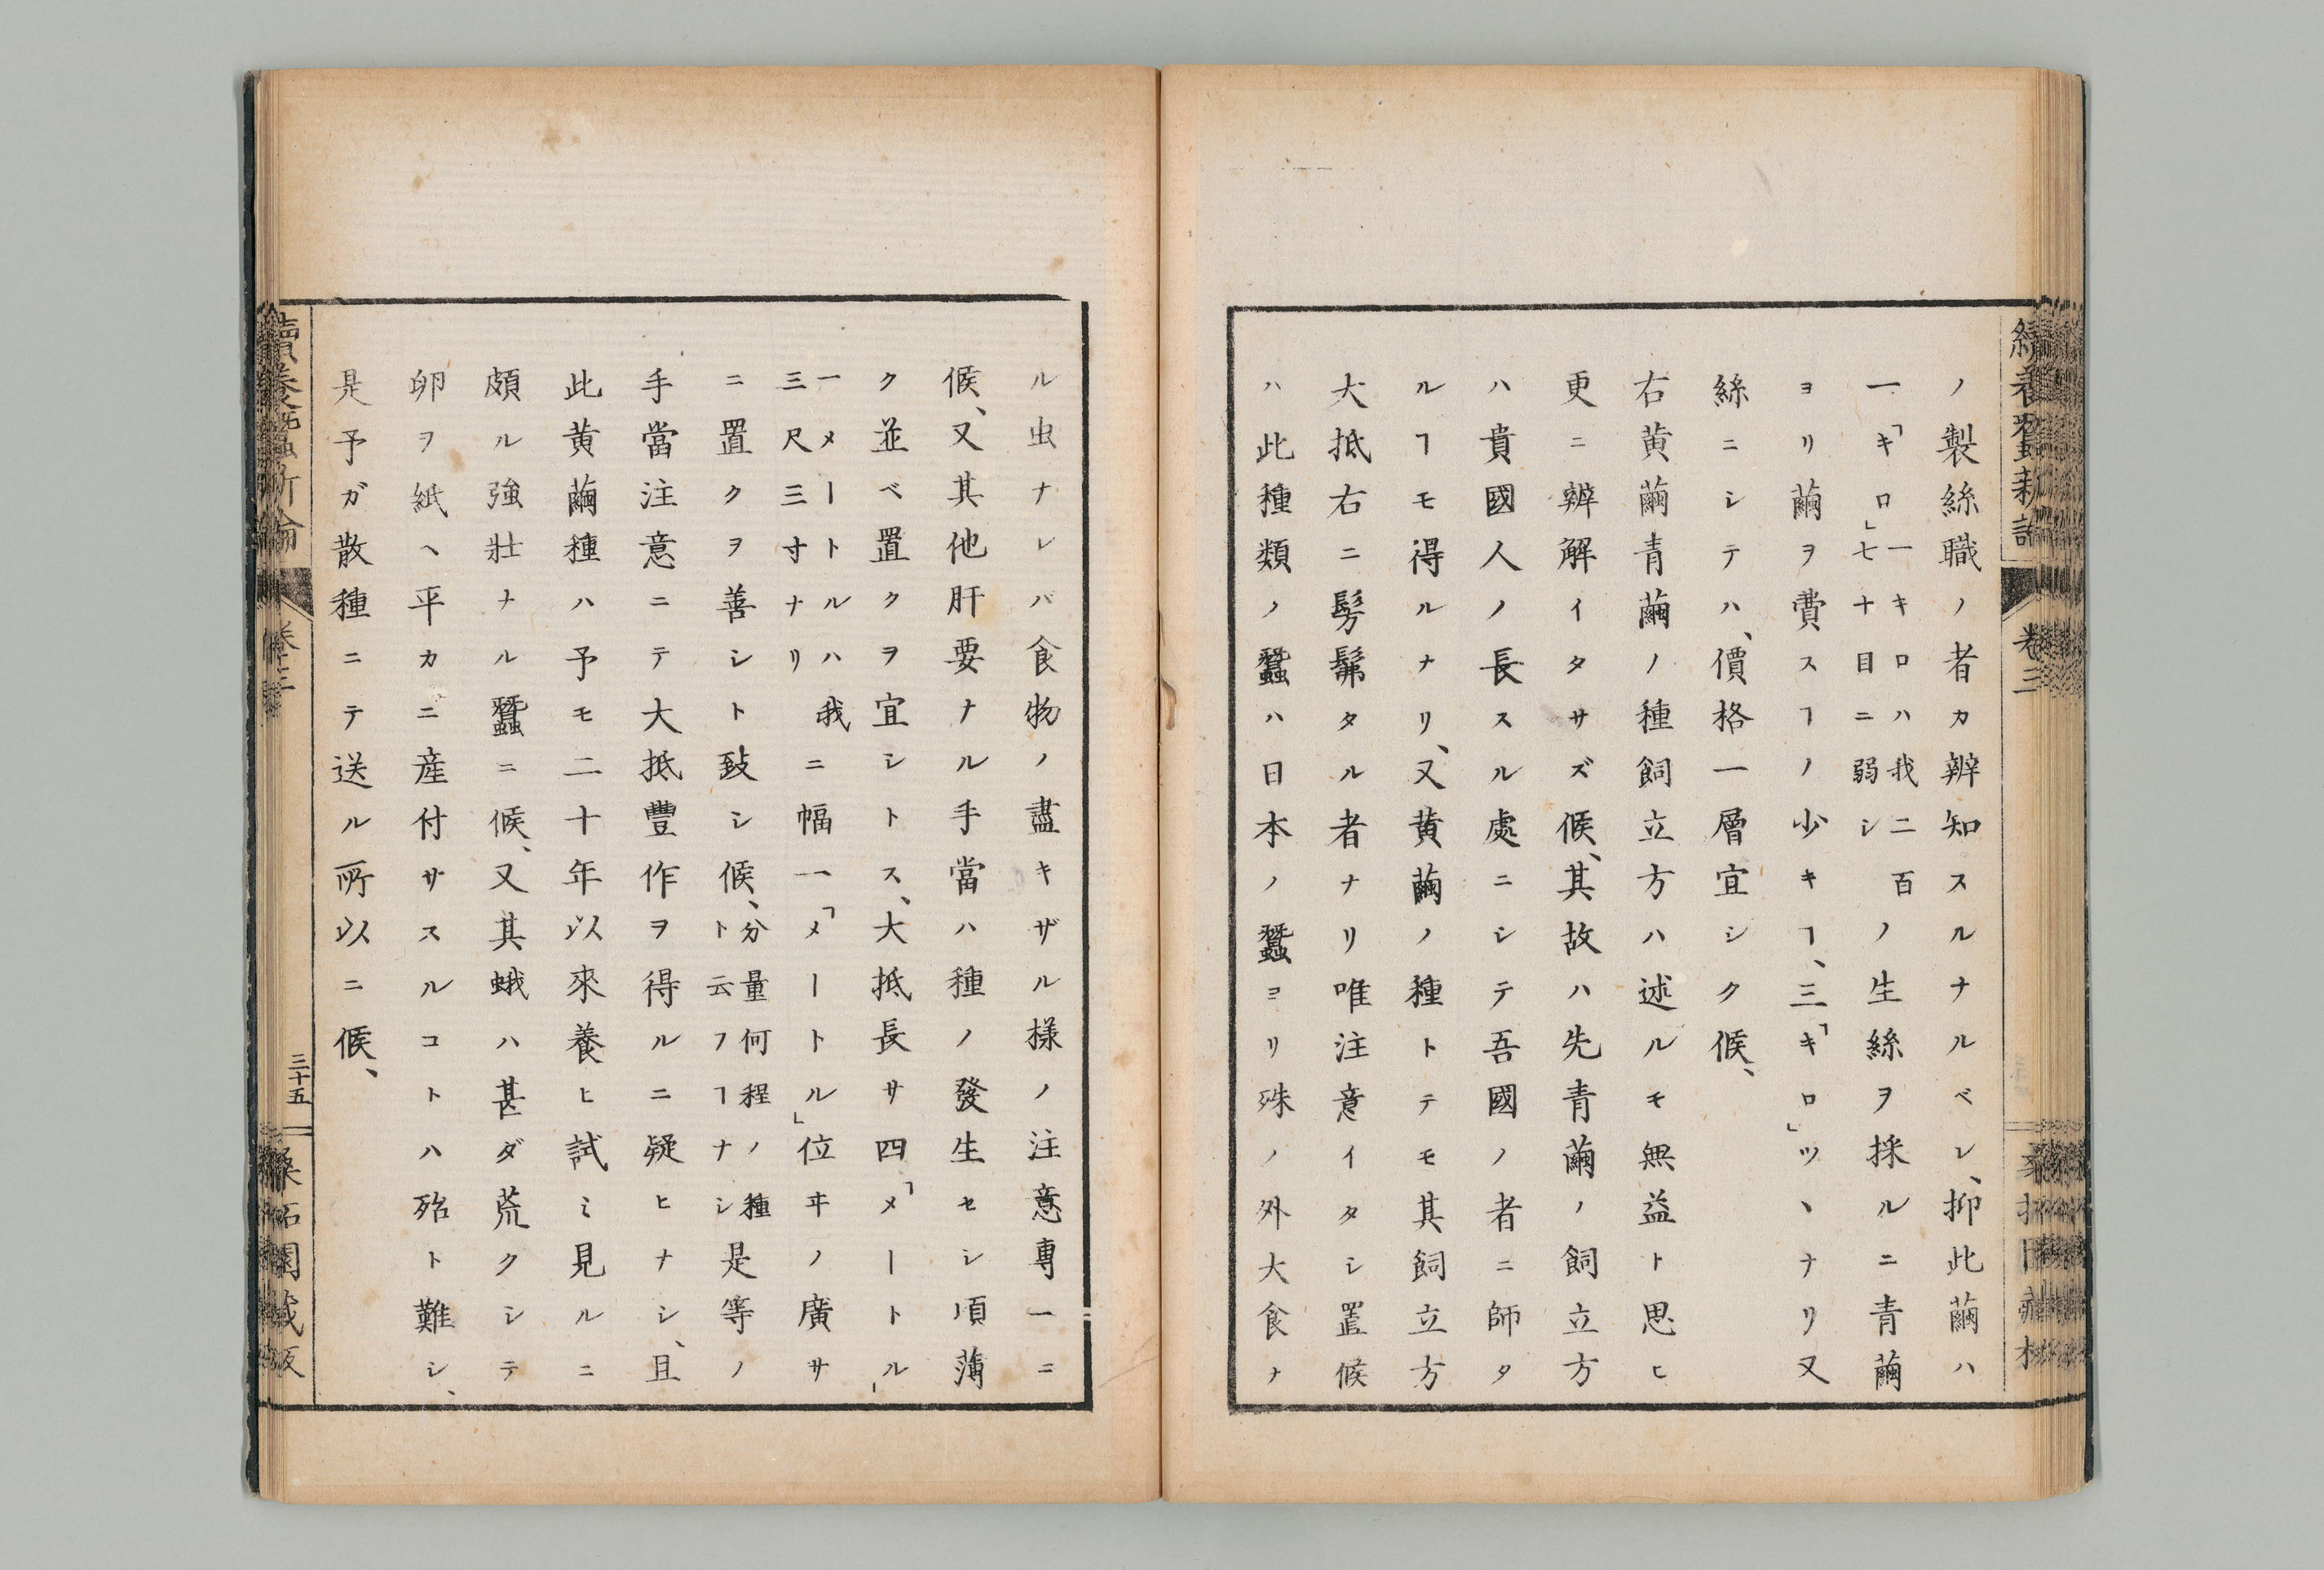 ノ製絲職ノ者カ辨知スルナルベシ、抑此繭ハ
一「キロ」一キロハ我二百七十目ニ弱シノ生絲ヲ採ルニ青繭
ヨリ繭ヲ費スヿノ少キヿ、三「キロ」ツヽナリ又
絲ニシテハ、價格一層宜シク候、
右黄繭青繭ノ種飼立方ハ述ルモ無益ト思ヒ
更ニ辨解イタサズ候、其故ハ先青繭ノ飼立方
ハ貴國人ノ長スル處ニシテ吾國ノ者ニ師タ
ルヿモ得ルナリ、又黄繭ノ種トテモ其飼立方
大抵右ニ髣髴タル者ナリ唯注意イタシ置候
ハ此種類ノ蠶ハ日本ノ蠶ヨリ殊ノ外大食ナ
ル虫ナレバ食物ノ盡キザル様ノ注意專一ニ
候、又其他肝要ナル手當ハ種ノ發生セシ頃薄
ク並ベ置クヲ宜シトス、大抵長サ四「メートル」
一メートルハ我三尺三寸ナリニ幅一「メートル」位ヰノ廣サ
ニ置クヲ善シト致シ候、分量何程ノ種ト云フヿナシ是等ノ
手當注意ニテ大抵豐作ヲ得ルニ疑ヒナシ、且
此黄繭種ハ予モ二十年以來養ヒ試ミ見ルニ
頗ル強壯ナル蠶ニ候、又其蛾ハ甚ダ荒クシテ
卵ヲ紙ヘ平カニ産付サスルコトハ殆ト難シ、
是予ガ散種ニテ送ル所以ニ候、
續養蠶新論
三十五